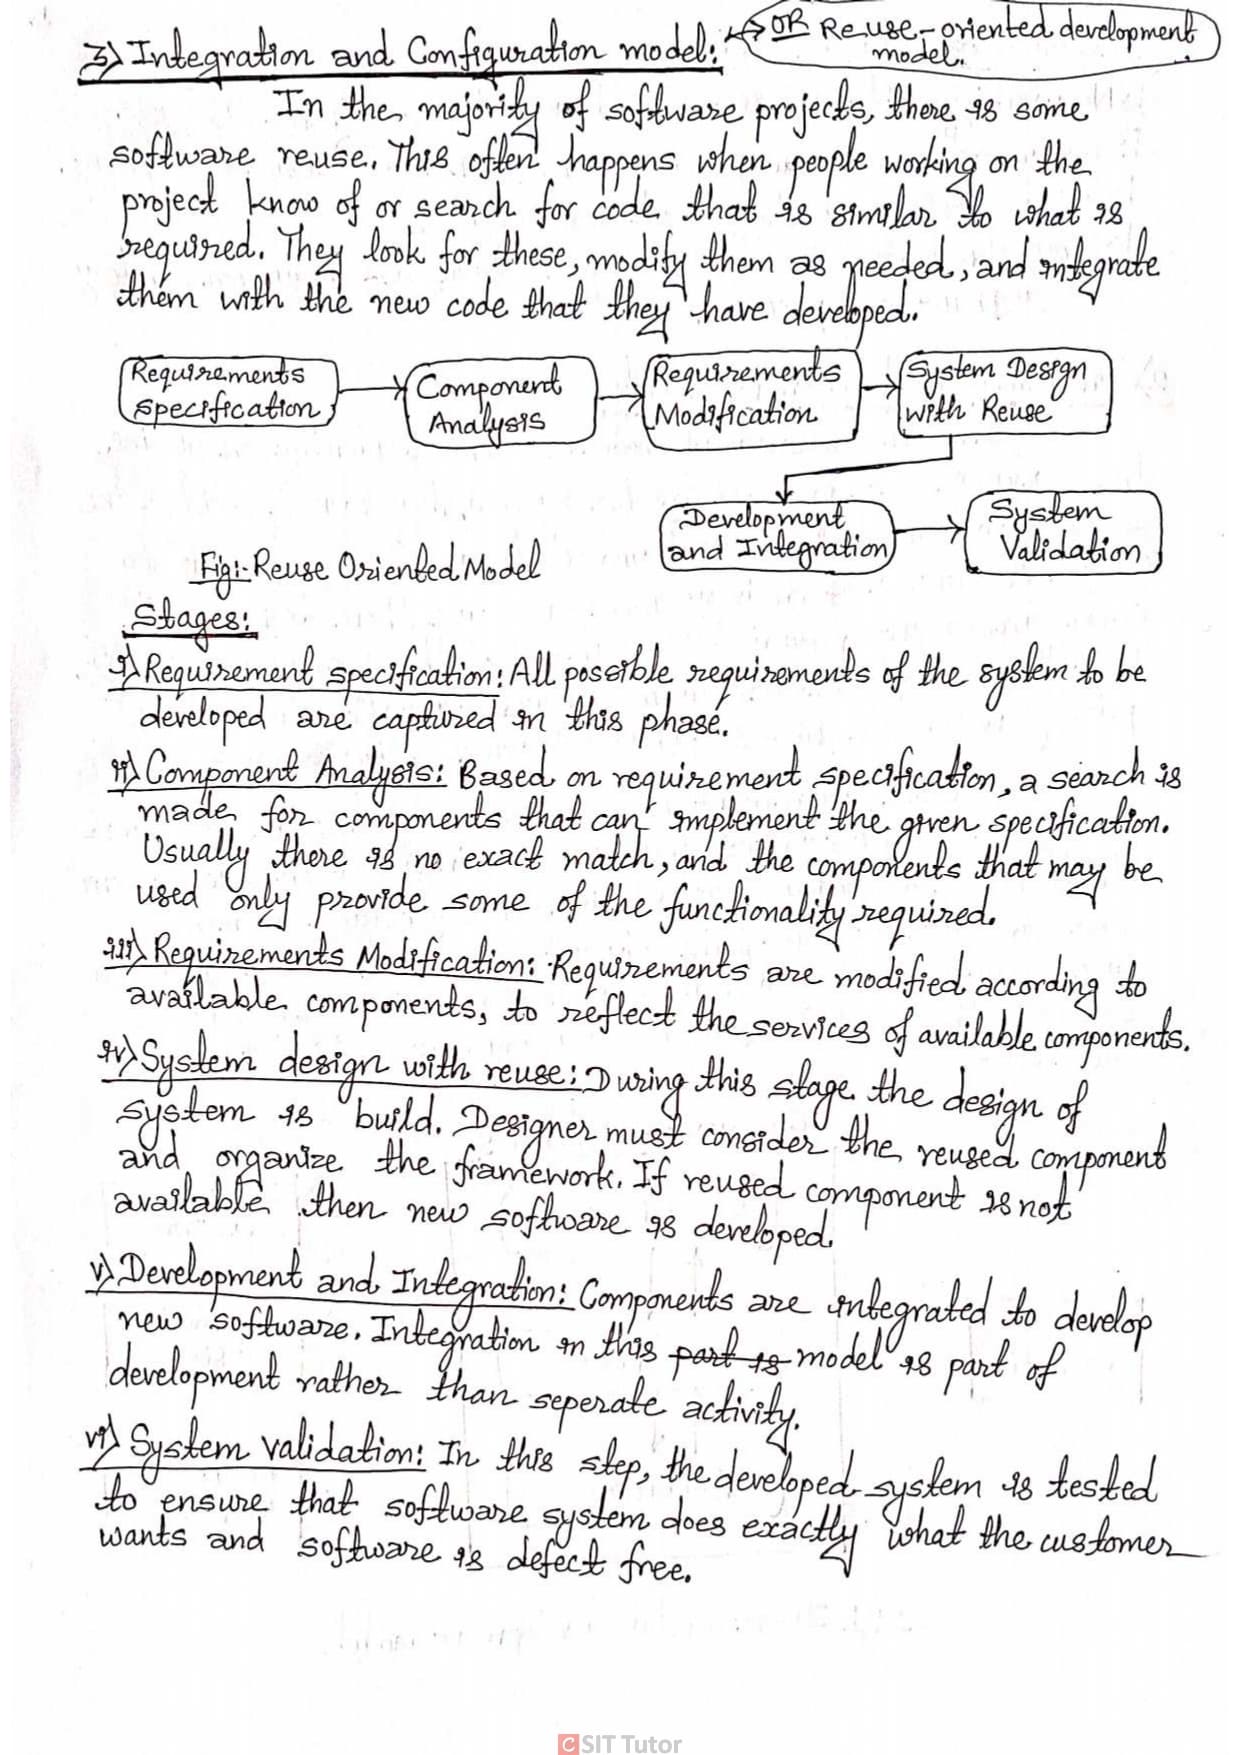 3) Integration and Configuration model: OR Re-use-oriented development
model.
In the majority of software projects, there is some
software reuse. This often happens when people working on the
project know of or search for code that is similar to what is
required. They look for these, modify them as needed, and integrate
them with the new code that they have developed.
Requirements
specification
Component
Analysis
Requirements
Modification
System Design
with Reuse
Development
and Integration
System
Validation
Fig:- Reuse Oriented Model
Stages:
i) Requirement specification: All possible requirements of the system to be
developed are captured in this phase.
ii) Component Analysis: Based on requirement specification, a search is
made for components that can implement the given specification.
Usually there is no exact match, and the components that may be
used only provide some of the functionality required.
iii) Requirements Modification: Requirements are modified according to
available components, to reflect the services of available components.
iv) System design with reuse: During this stage the design of
system is build. Designer must consider the reused component
and organize the framework. If reused component is not
available then new software is developed.
v) Development and Integration: Components are integrated to develop
new software. Integration in this part is model is part of
development rather than seperate activity.
vi) System validation: In this step, the developed system is tested
to ensure that software system does exactly what the customer
wants and software is defect free.
CSIT Tutor